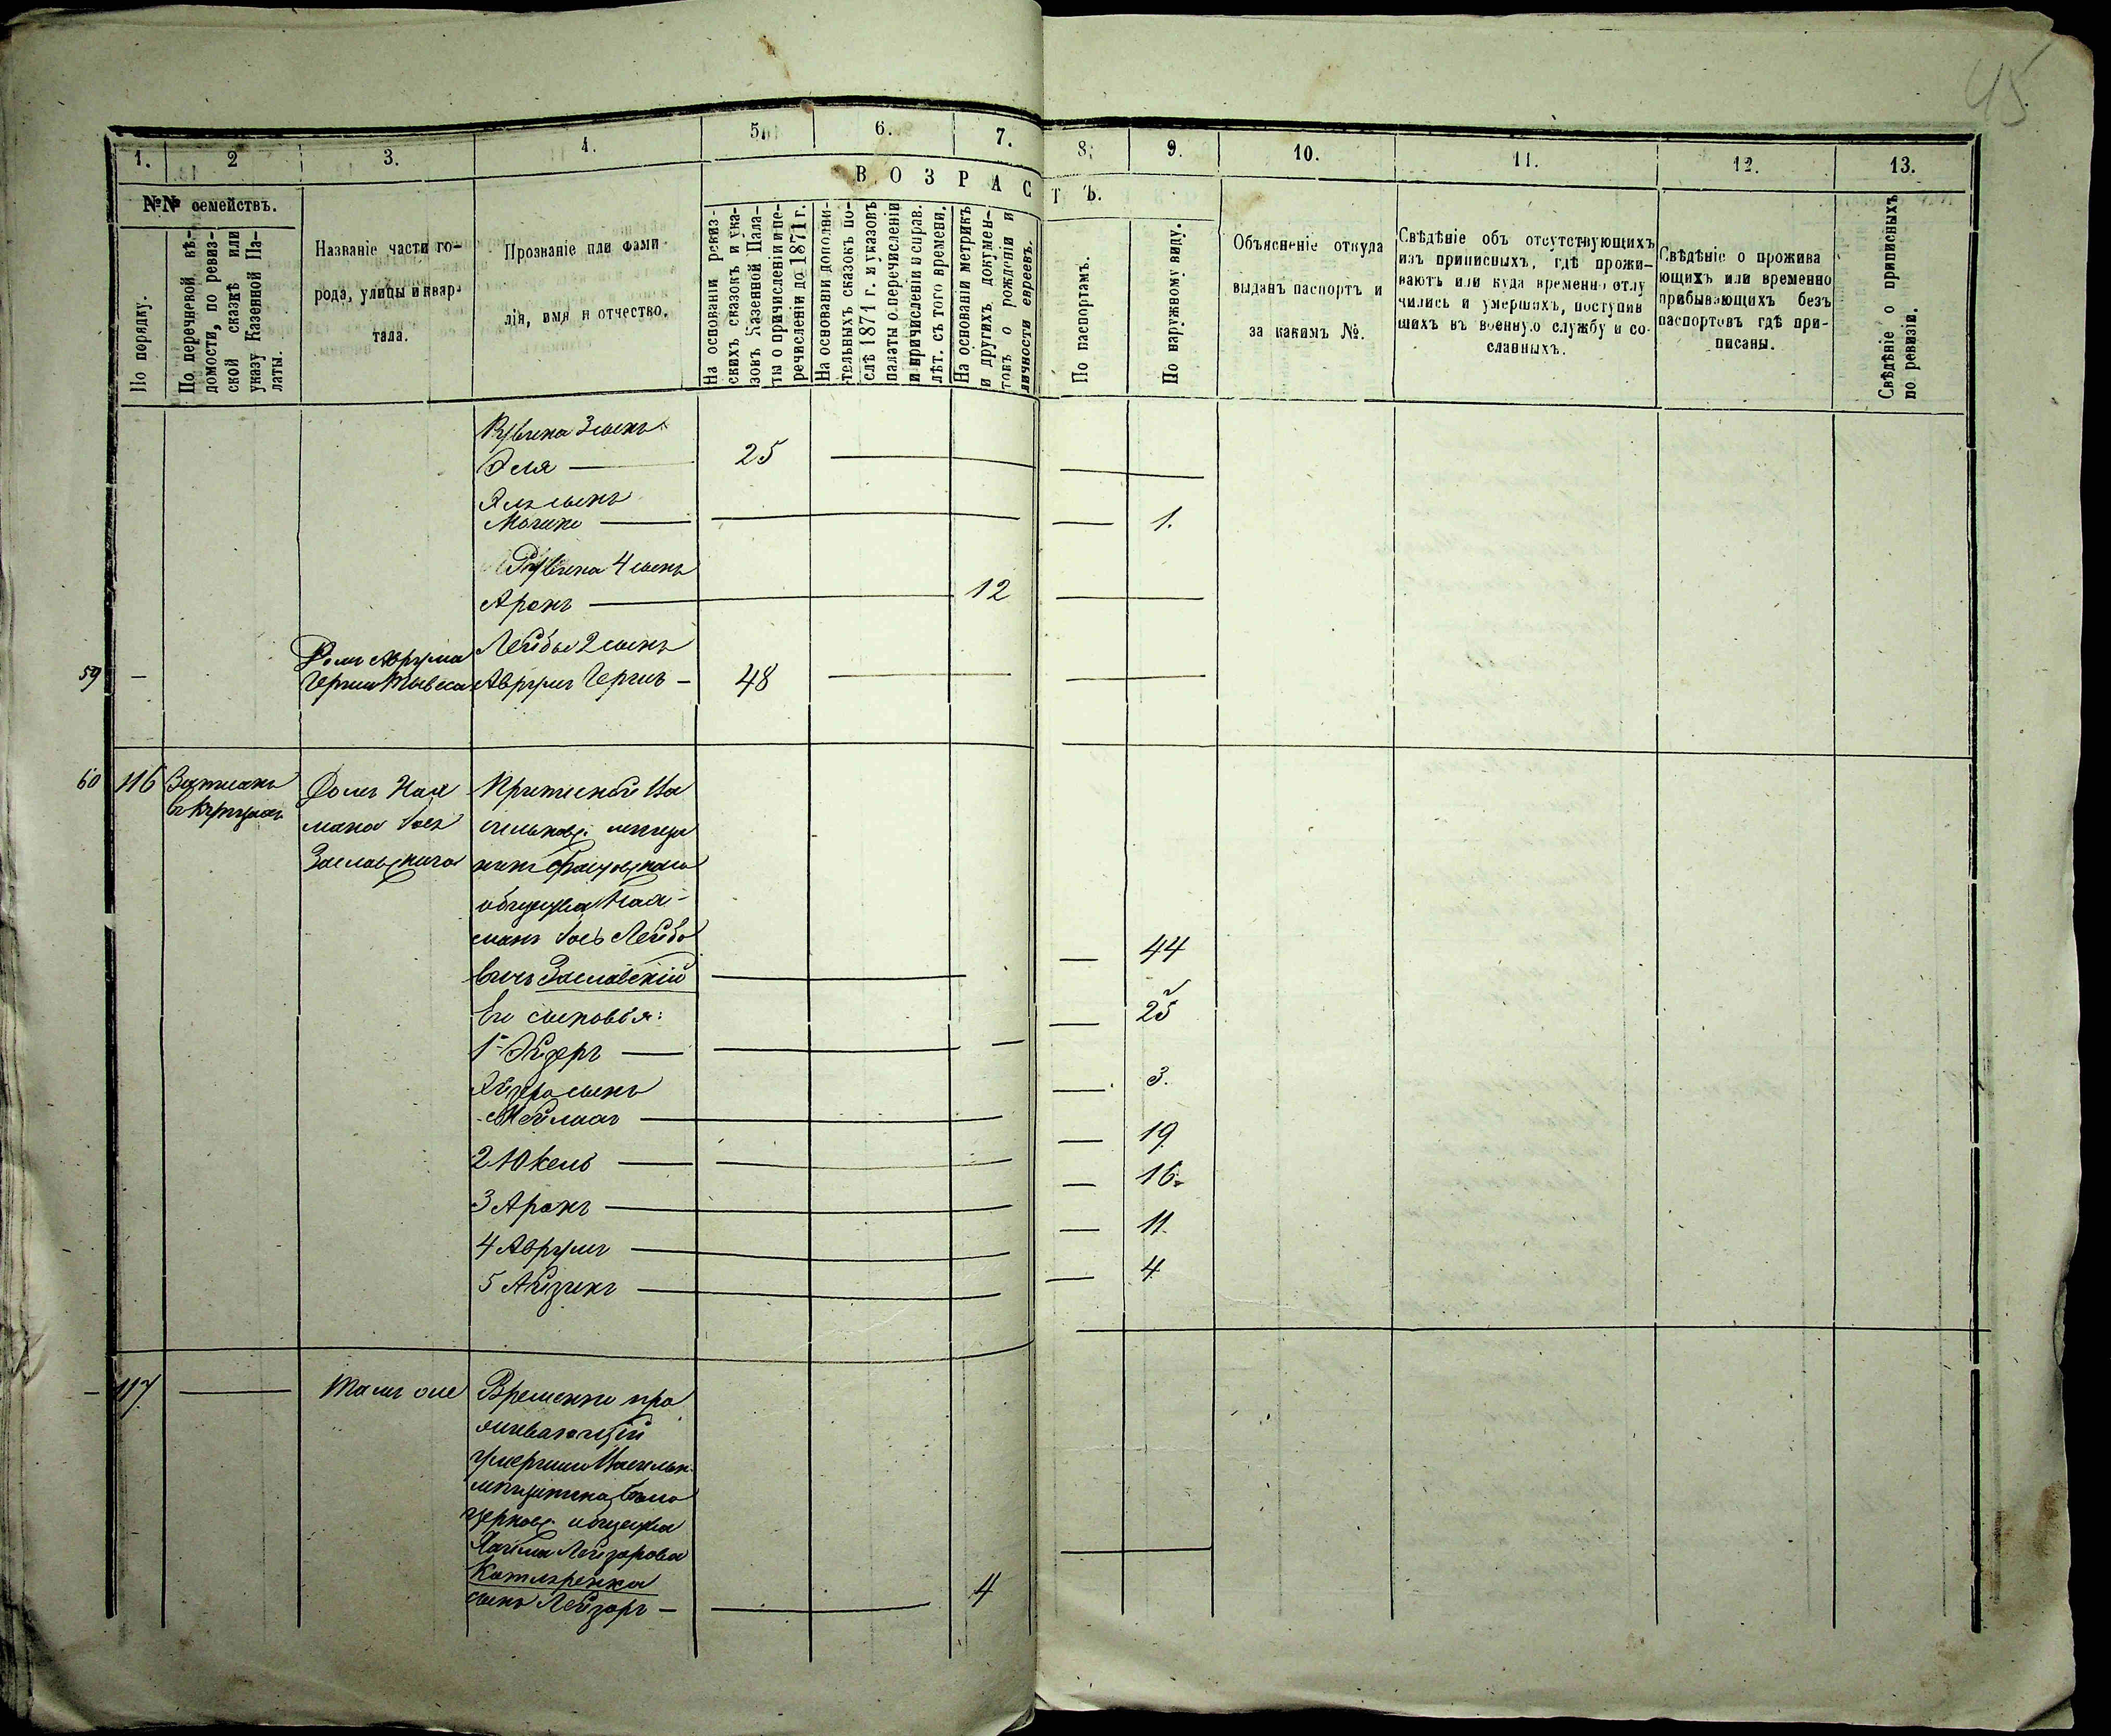 45
1. 2 3. 4. 5. 6. 7. 8. 9. 10. 11. 12. 13.
В О З Р А С Т Ъ.
№№ семействъ.
По порядку.
По перечневой вѣ-
домости, по ревиз-
ской сказкѣ или
указу Казенной Па-
латы.
Названіе части го-
рода, улицы и квар-
тала.
Прозваніе или фами-
лія, имя и отчество.
На основаніи ревиз-
скихъ сказокъ и ука-
зовъ Казенной Пала-
ты о причисленіи и пе-
речисленіи до 1871 г.
На основаніи дополни-
тельныхъ сказокъ по-
слѣ 1871 г. и указовъ
палаты о перечисленіи
и причисленіи и справ.
лѣт. съ того времени.
На основаніи метрикъ
и другихъ докумен-
товъ о рожденіи и
личности евреевъ.
По паспортамъ.
По наружному виду.
Объясненіе откуда
выданъ паспортъ и
за какимъ №.
Свѣдѣніе объ отсутствующихъ
изъ приписныхъ, гдѣ прожи-
ваютъ или куда временно отлу
чились и умершихъ, поступив
шихъ въ военную службу и со-
сланныхъ.
Свѣдѣніе о прожива
ющихъ или временно
прибывающихъ безъ
паспортовъ гдѣ при-
писаны.
Свѣдѣніе о приписныхъ
по ревизіи.
Рувина 3 сынъ
Эля — 25
Эли сынъ
— 1.
Рувина 4 сынъ
Аронъ — 12
Домъ Аврума Лейбы 2 сынъ
59 — Герша Аврумъ Гершъ — 48
60 116 Домъ Нах Приписной Ва
мана Іось сильков. мѣщан
Заславскаго нинъ Фастовскаго
общества Нах-
манъ Іось Лейбо
вичъ Заславскій — 44
Его сыновья:
1 — 25
сынъ
— 3.
2 Юкель — 19
3 Аронъ — 16.
4 Аврумъ — 11
5 Айзикъ — 4
117 — Тамъ оне Временно про
живающій
умершаго Васильк.
мѣщанина Бѣло
церков. общества
Хаима Лейзорова
Котляренка
сынъ Лейзоръ — 4